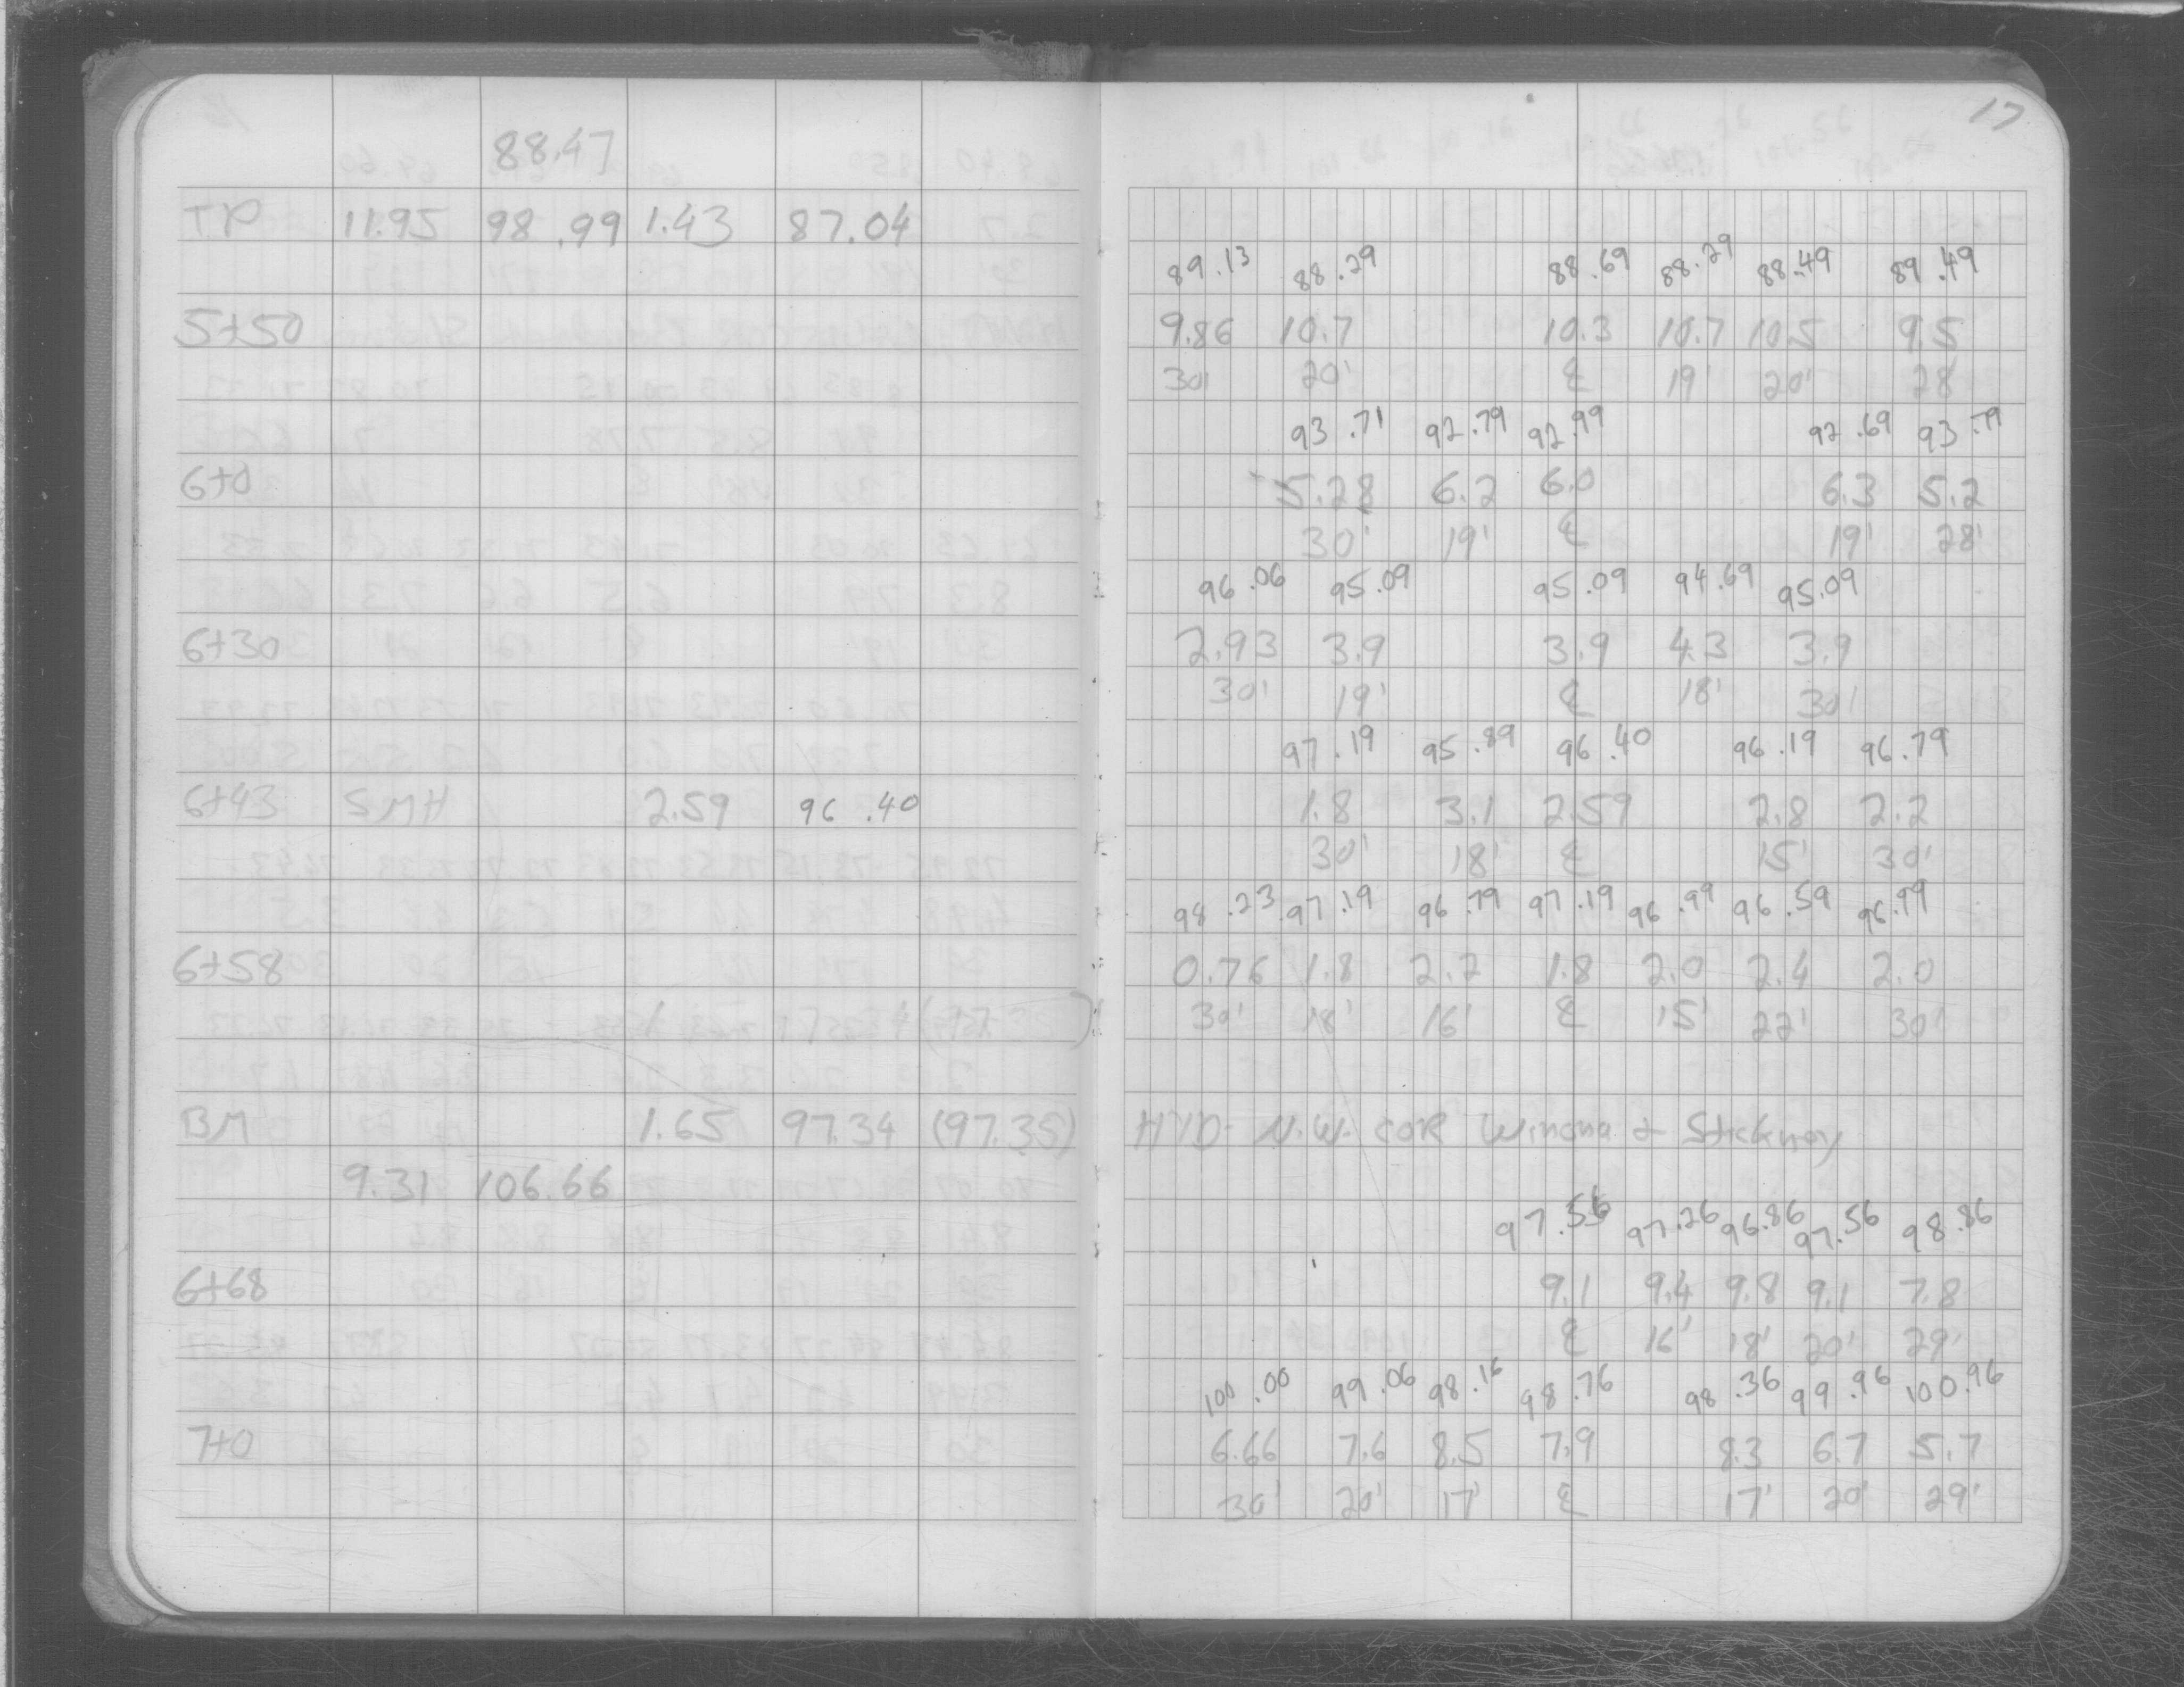 17
88.47
TP 11.95 98.99 1.43 87.04
89.13 88.29 88.69 88.29 88.49 89.49
5+50 9.86 10.7 10.3 10.7 10.5 9.5
30' 20' ℄ 19' 20' 28'
93.71 92.79 92.99 92.69 93.79
6+0 5.28 6.2 6.0 6.3 5.2
30' 19' ℄ 19' 28'
96.06 95.09 95.09 94.69 95.09
6+30 2.93 3.9 3.9 4.3 3.9
30' 19' ℄ 18' 30'
97.19 95.89 96.40 96.19 96.79
6+43 SMH 2.59 96.40 1.8 3.1 2.59 2.8 2.2
30' 18' ℄ 15' 30'
98.23 97.19 96.79 97.19 96.99 96.59 96.99
6+58 0.76 1.8 2.2 1.8 2.0 2.4 2.0
30' 18' 16' ℄ 15' 22' 30'
BM 1.65 97.34 (97.35) HYD- N.W. COR Winona & Stickney
9.31 106.66
97.56 97.26 96.86 97.56 98.86
6+68 9.1 9.4 9.8 9.1 7.8
℄ 16' 18' 20' 29'
100.00 99.06 98.16 98.76 98.36 99.96 100.96
7+0 6.66 7.6 8.5 7.9 8.3 6.7 5.7
30' 20' 17' ℄ 17' 20' 29'